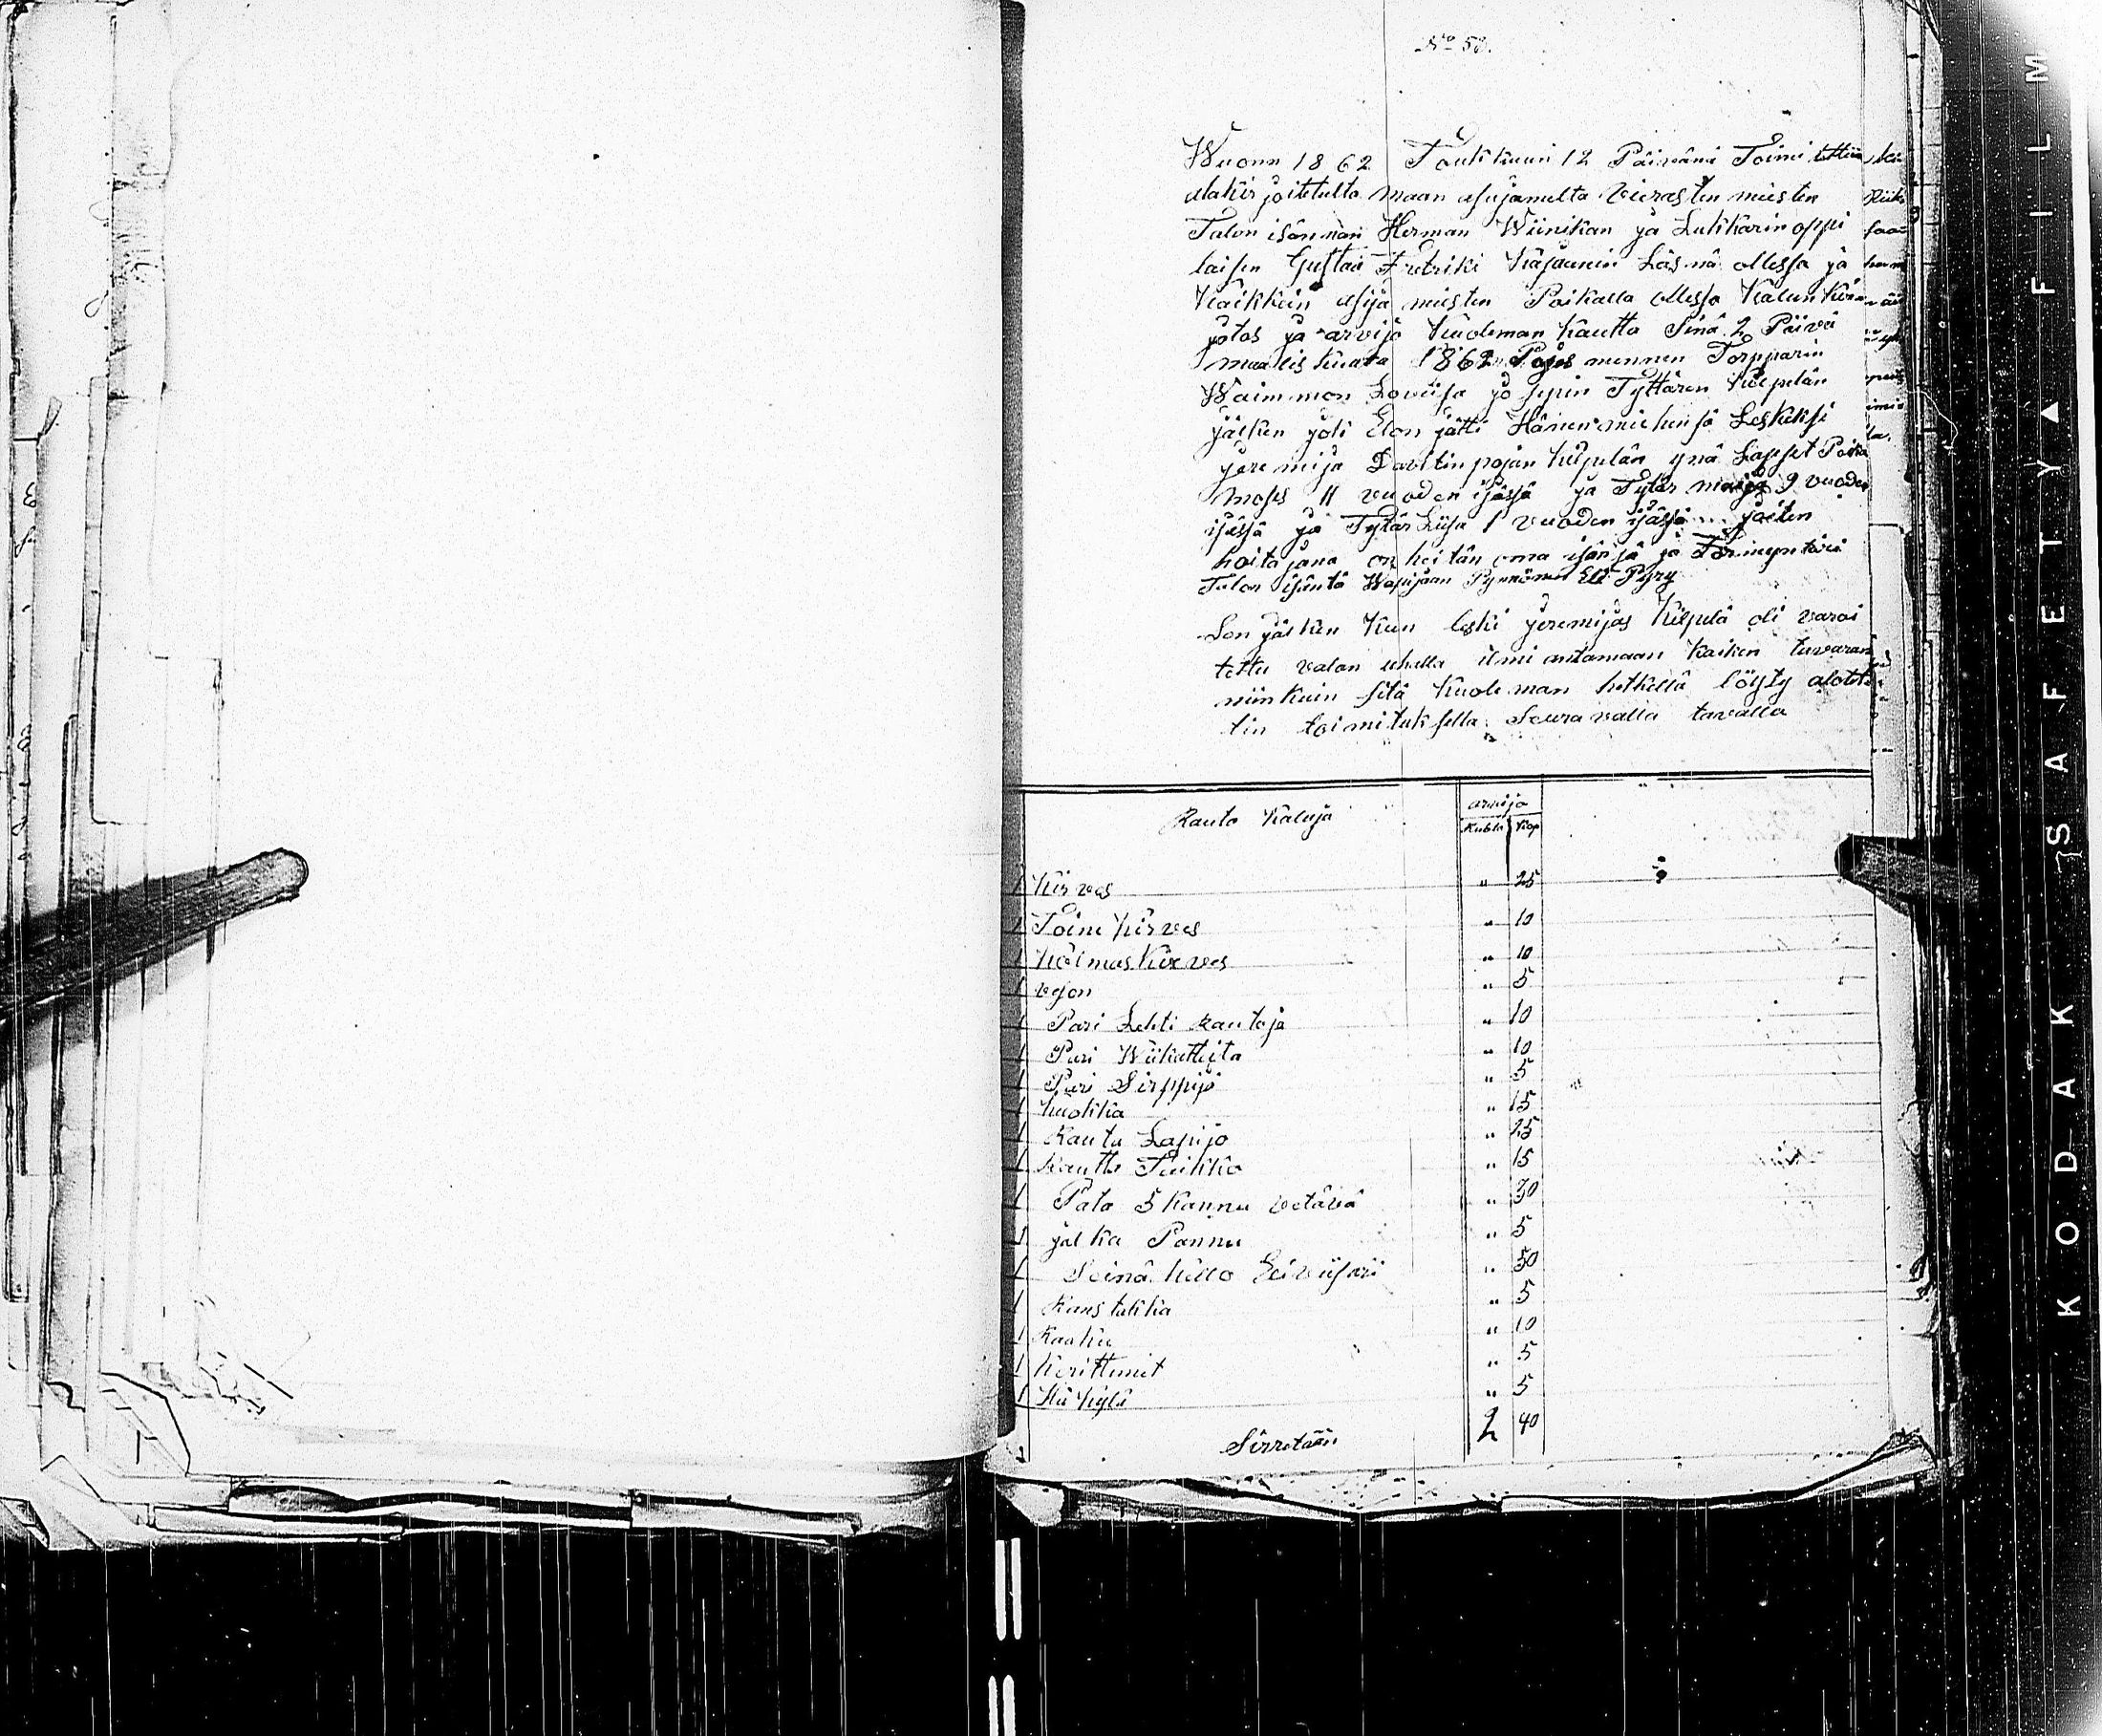 No 53.
Wuonn 1862 Toukkuun 12 Päivänä Toimitettiin
allakirjoitetulta maan asujamelta vierasten miesten
Talon isännän Herman Wiinikan ja Lukkarin oppi
laisen Gustaa Fretriki Kajaanin Läsnä ollessa ja
Kaikkein asija miesten Paikalla ollessa Kalun Kir
jotos ja arvijo Kuoleman Kautta Sinä 2 Päivä
maaliskuuta 1862 Pojes mennen Torpparin
Waimmon Loviisa jo sepin Tyttären Kilpelän
jälken joli Elon jätti Hänen miehensä Leskeksi
jeremija Davitin pojan Kilpelän ynä Lapset Poika
Moses 11 vuoden ijässä ja Tytär maija 9 vuoden
ijässä ja Tytär Liisa 1 vuoden ijässä joiten
hoitajana on heitän oma isänsä ja
Talon isäntä Wapijaan Pynnönen Eli Pyry
Sen jälken Kun leski jeremijas Kilpelä oli varoi
tettu valan uhalla ilmi antamaan Kaiken tavaran
niin Kuin sitä Kuoleman hetkellä löyty alotet
tin toimituksella Seuravalla tavalla
Rauta Kaluja arvijo
Rubla Kop
1 Kirves " 25
1 Toine Kirves " 10
1 Kolmas Kirves " 10
1 " 5
1 Pari Lehti Rautoja " 10
1 Pari Wiikatteita " 10
1 Pari Sirppijä " 5
1 Kuokka " 15
1 Rauta Lapijo " 25
1 Rautta Tuikka " 15
1 Pata 5 Kannu vetävä " 30
1 jalka Pannu " 5
1 Seinä Kello " 50
1 " 5
1 Raaka " 10
1 Kerittimet " 5
1 Häkylä " 5
Sirretään 2 40
KODAK SAFETY ▲ FILM